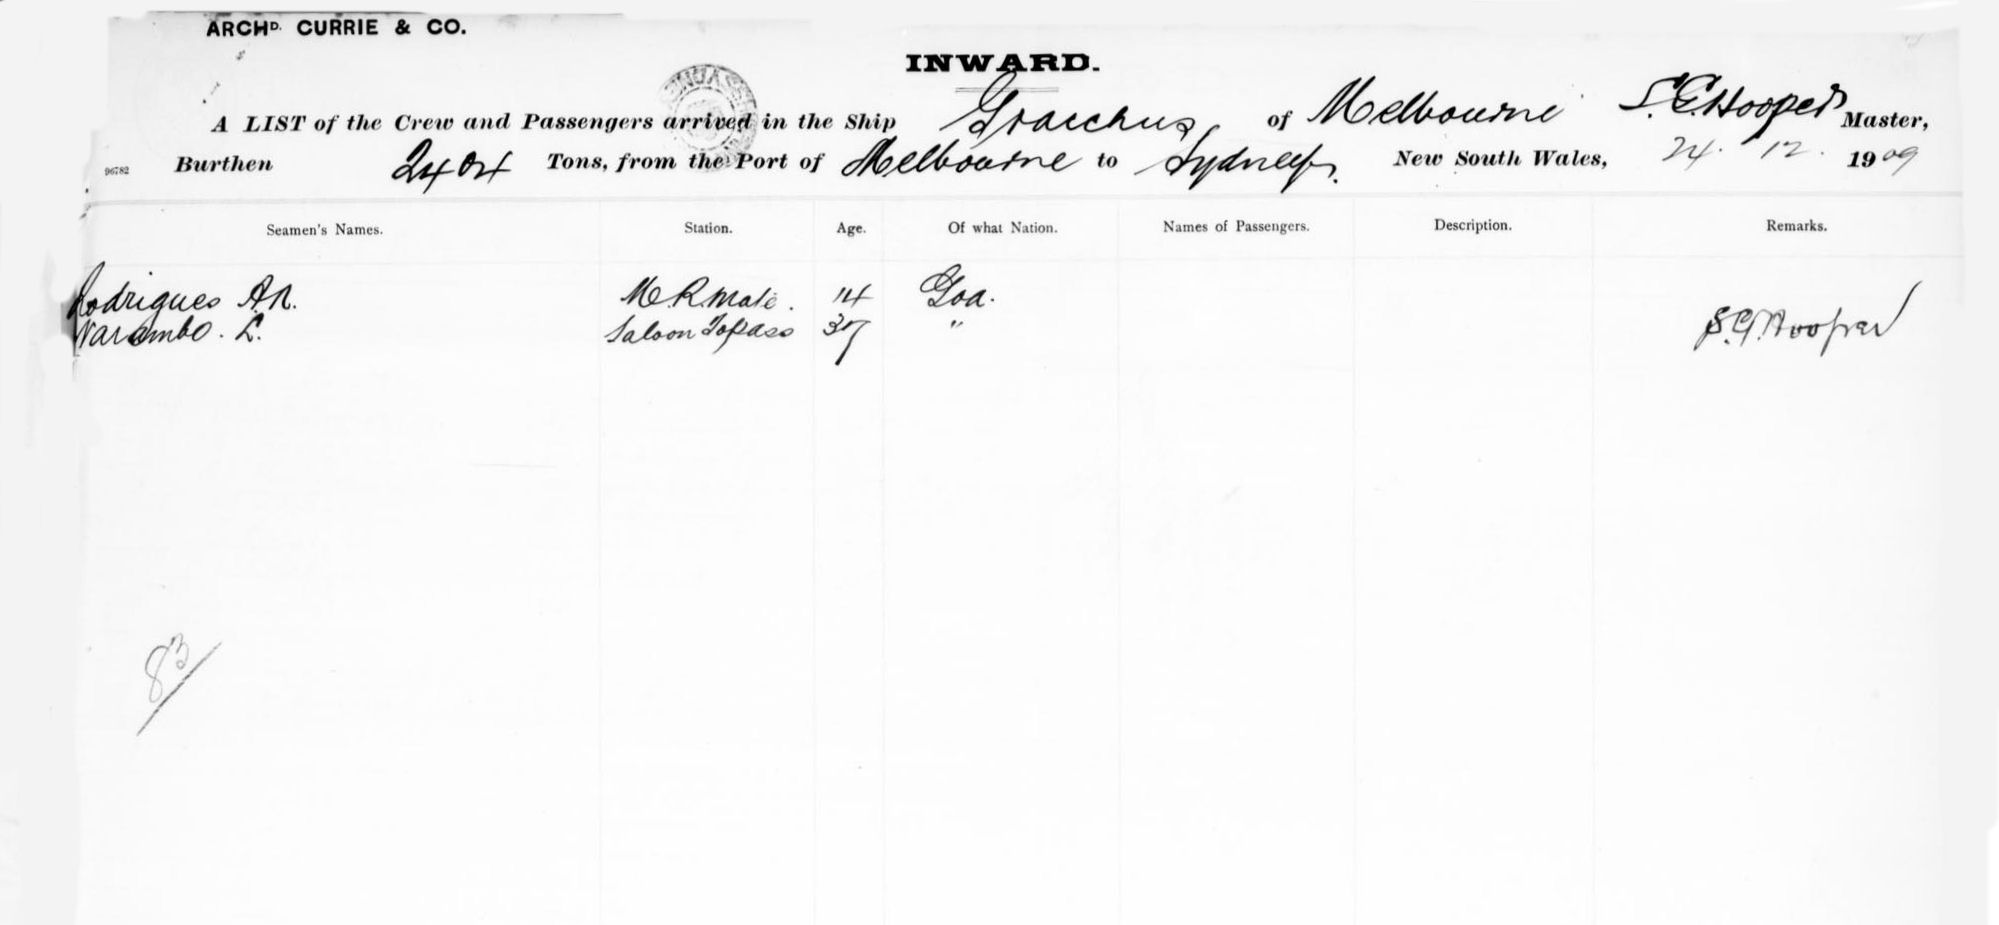 ARCHD. CURRIE & CO.
INWARD.
A LIST of the Crew and Passengers arrived in the Ship Gracchus, of Melbourne S.G. Hooper Master,
96782 Burthen 2404 Tons, from the Port of Melbourne to Sydney. New South Wales, 24. 12. 1909
Seamen's Names. Station. Age. Of what Nation. Names of Passengers. Description. Remarks.
Rodrigues A.R. M.R. Mate. 14 Goa.
Narambo. L. Saloon Topass 37 " S.G. Hooper
83